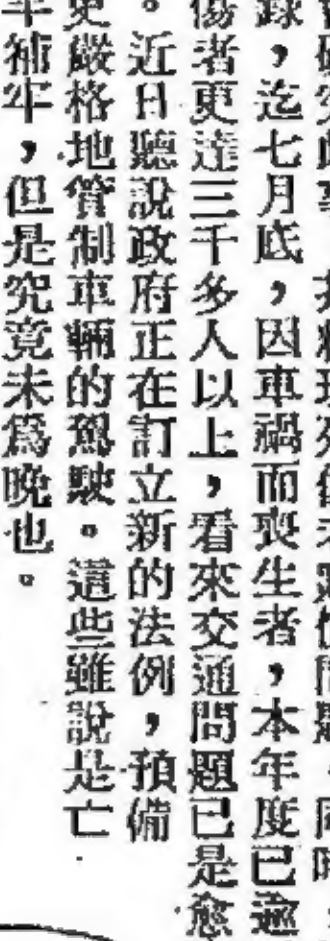 錄，迄七月底，因車禍而喪生者，本年度已逾
傷者更達三千多人以上，看來交通問題已是愈
。近日聽說政府正在訂立新的法例，預備
更嚴格地管制車輛的駕駛。這些雖說是亡
羊補牢，但是究竟未爲晚也。